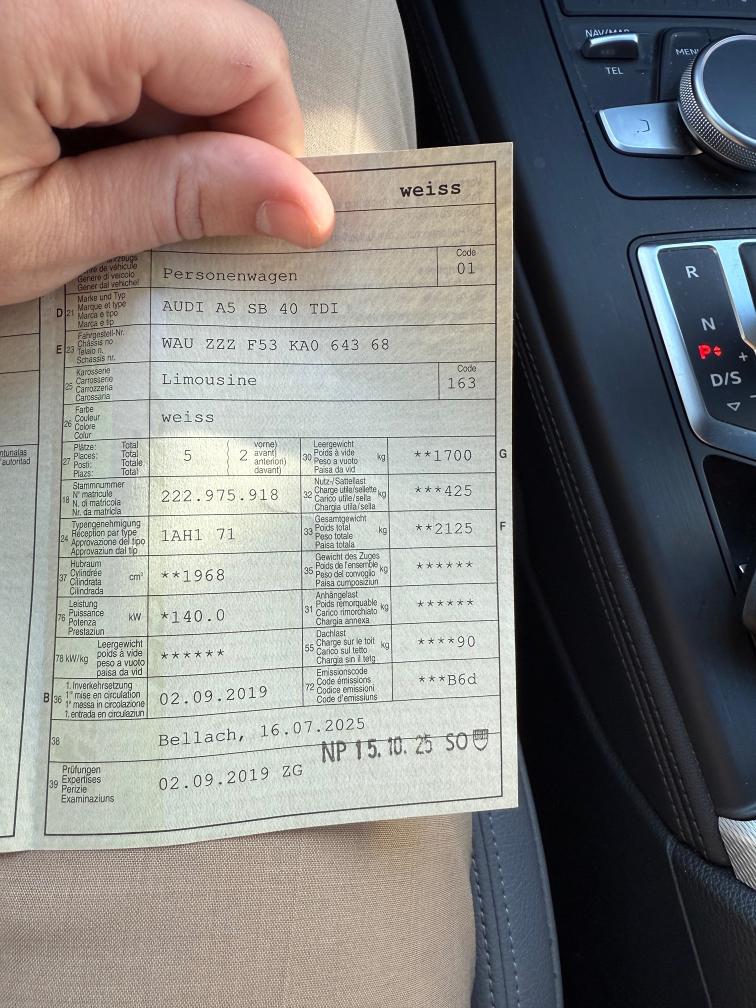 NAV/MAP
MENU
TEL
R
N
P
+
D/S
−
weiss
Genere di veicolo
Gener dal vehichel
Personenwagen
Code
01
D 21 Marke und Typ
Marque et type
Marca e tipo
Marca e tip
AUDI A5 SB 40 TDI
E 23 Fahrgestell-Nr.
Châssis no
Telaio n.
Schassis nr.
WAU ZZZ F53 KA0 643 68
25 Karosserie
Carrosserie
Carrozzeria
Carossaria
Limousine
Code
163
26 Farbe
Couleur
Colore
Colur
weiss
27 Plätze: Total
Places: Total
Posti: Totale
Plazs: Total
5 ( 2 vorne)
avant)
anteriori)
davant)
30 Leergewicht
Poids à vide
Peso a vuoto
Paisa da vid
kg
**1700
G
18 Stammnummer
N° matricule
N. di matricola
Nr. da matricla
222.975.918
32 Nutz-/Sattellast
Charge utile/sellette
Carico utile/sella
Chargia utila/sella
kg
***425
24 Typengenehmigung
Réception par type
Approvazione del tipo
Approvaziun dal tip
1AH1 71
33 Gesamtgewicht
Poids total
Peso totale
Paisa totala
kg
**2125
F
37 Hubraum
Cylindrée
Cilindrata
Cilindrada
cm³
**1968
35 Gewicht des Zuges
Poids de l'ensemble
Peso del convoglio
Paisa cumposiziun
kg
******
76 Leistung
Puissance
Potenza
Prestaziun
kW
*140.0
31 Anhängelast
Poids remorquable
Carico rimorchiato
Chargia annexa
kg
******
78 kW/kg Leergewicht
poids à vide
peso a vuoto
paisa da vid
******
55 Dachlast
Charge sur le toit
Carico sul tetto
Chargia sin il tetg
kg
****90
B 36 1. Inverkehrsetzung
1re mise en circulation
1a messa in circolazione
1. entrada en circulaziun
02.09.2019
72 Emissionscode
Code émissions
Codice emissioni
Code d'emissiuns
***B6d
38
Bellach, 16.07.2025
NP 15.10.25 SO
39 Prüfungen
Expertises
Perizie
Examinaziuns
02.09.2019 ZG